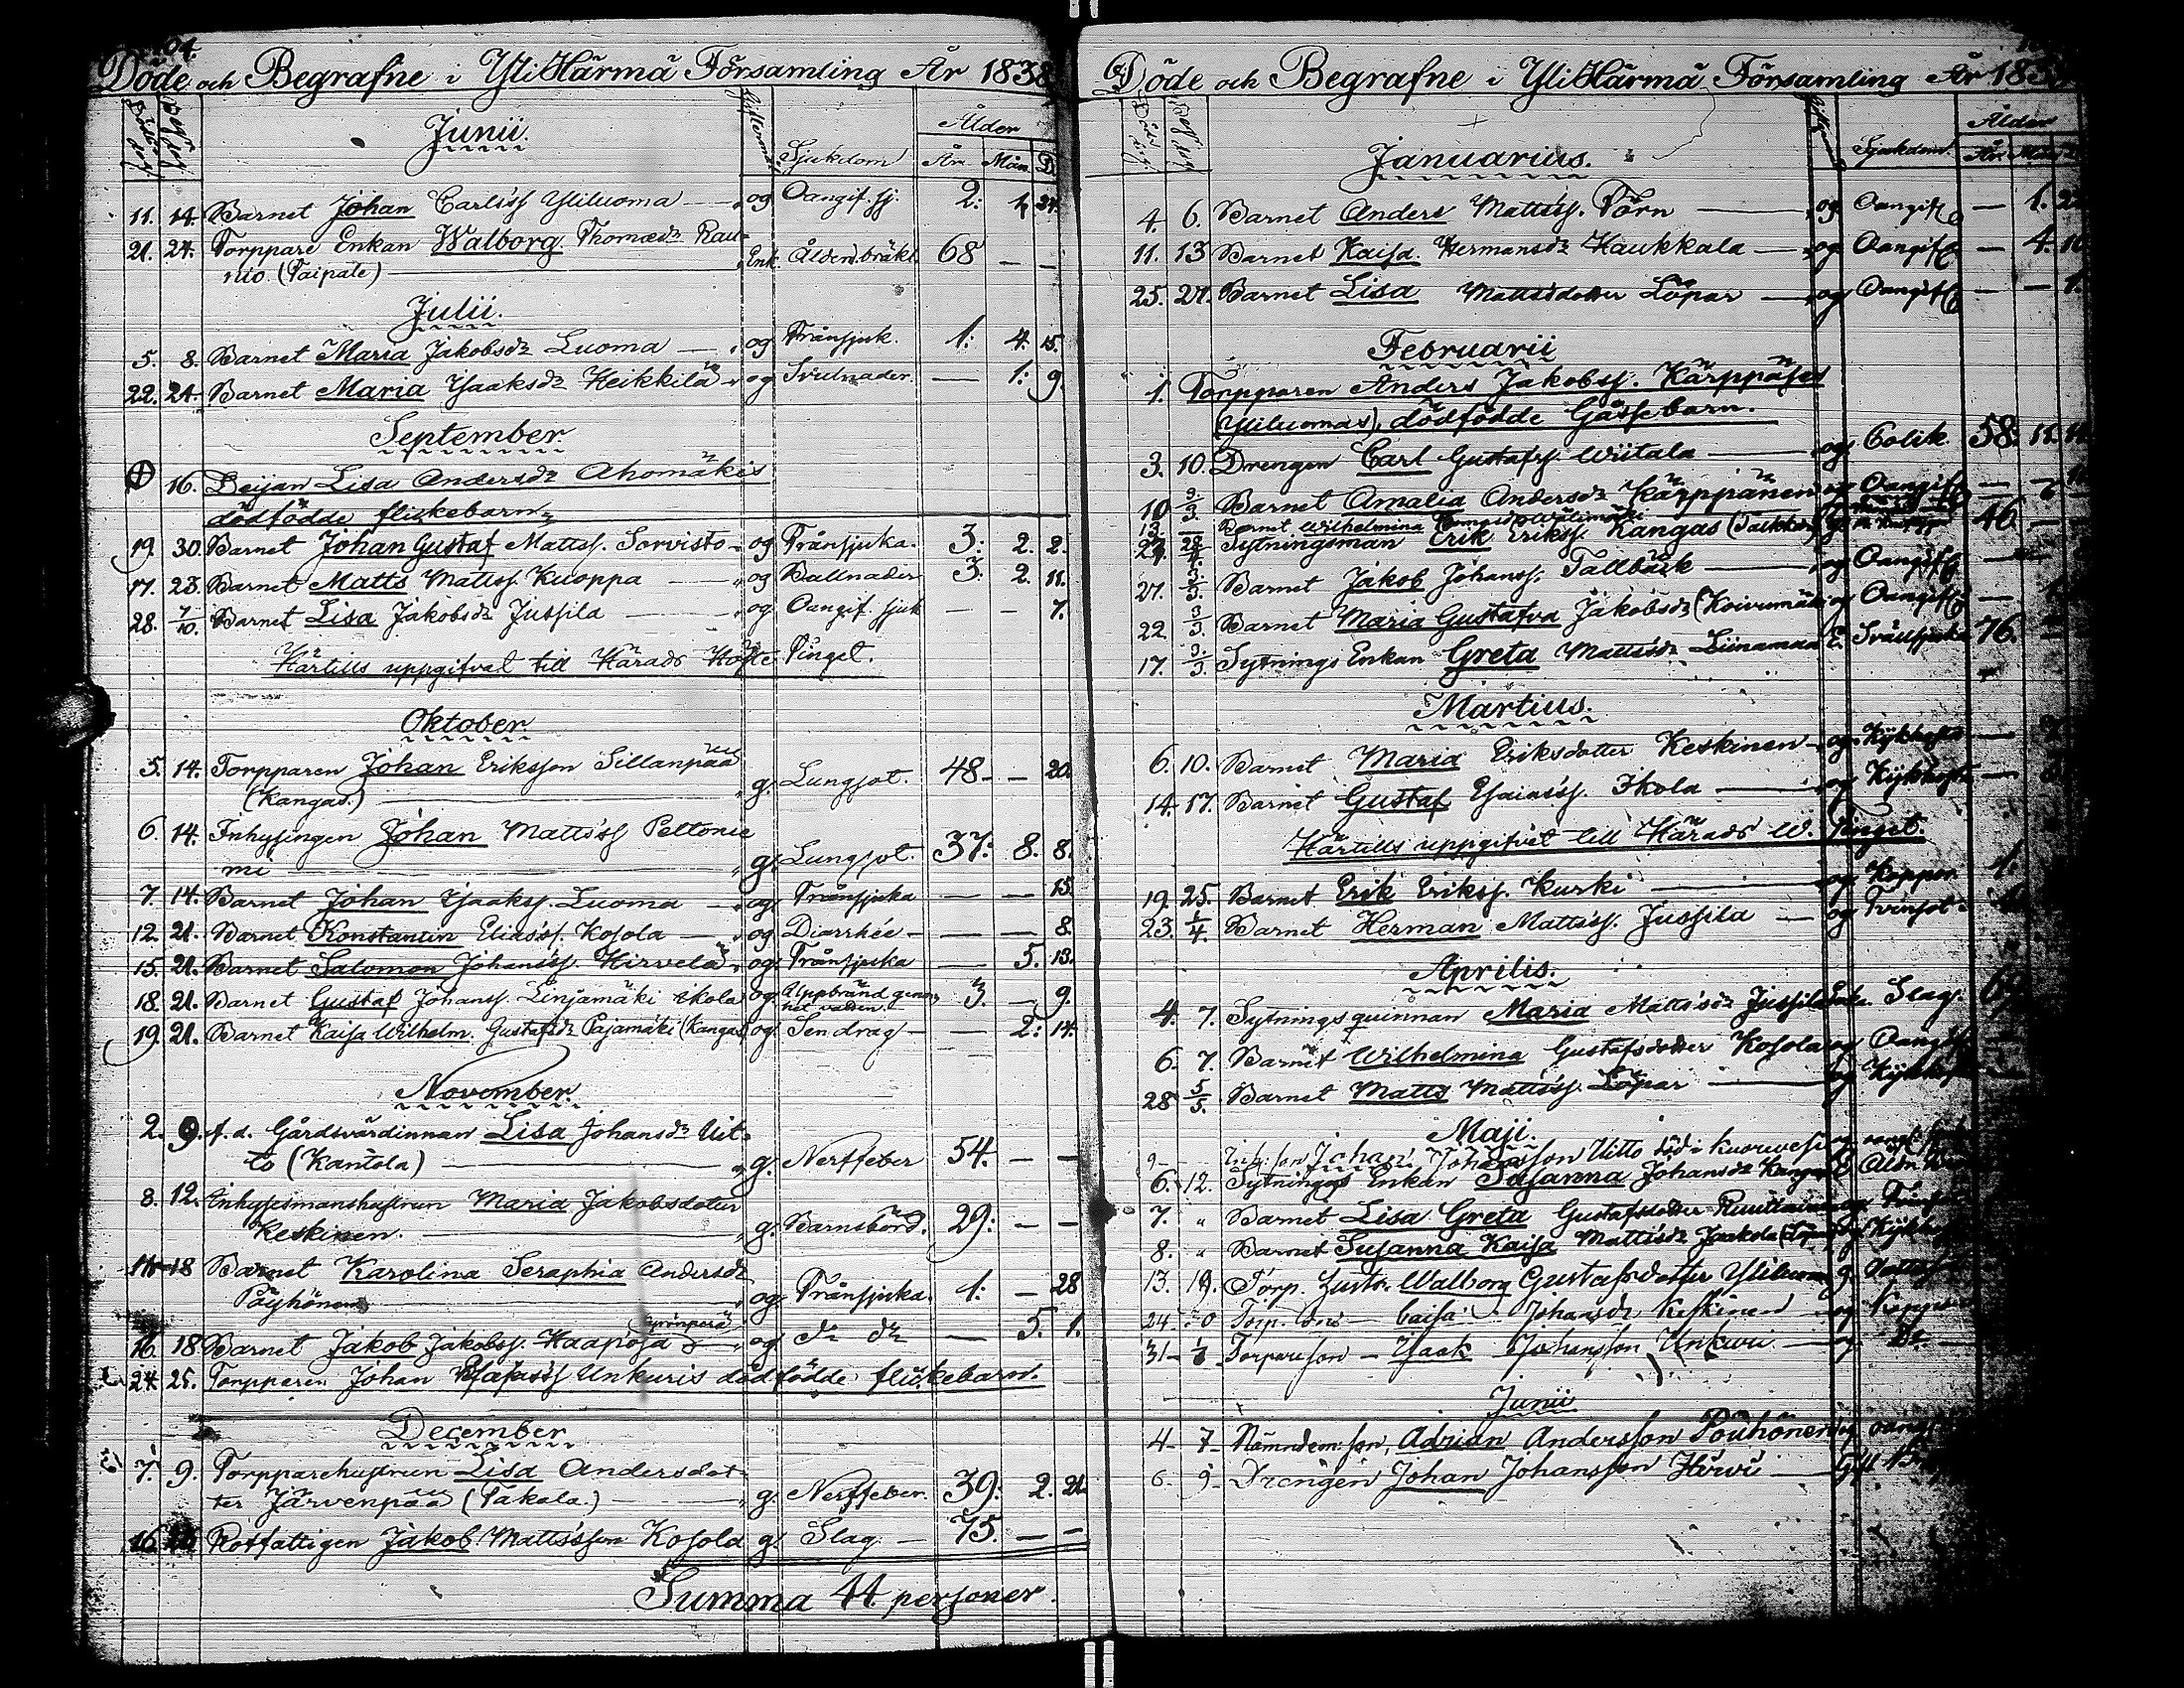 104.
Döde och Begrafne i YliHärmä Församling År 1838
Döde dag Begr. dag Junii. Sjukdom Ålder År. Mån. D.
11. 14. Barnet Johan Carlsss Yliluoma — og Oangif. sj. 2: 1. 24.
21. 24. Torppare Enkan Walborg Thomædr Rau-
nio. (Taipale) — Enk. Ålderd. bräkl. 68 — —
Julii.
5. 8. Barnet Maria Jakobsdr Luoma — og Trånsjuk. 1: 4. 15.
22. 24. Barnet Maria Isaaksdr Heikkilä — og Svulnader. — 1: 9.
September.
16. Deijan Lisa Andersdr Ahomäkis
dödfödde flickebarn.
19. 30. Barnet Johan Gustaf Mattss. Sorvisto — og Trånsjuka. 3: 2. 2.
17. 23. Barnet Matts Mattss. Kuoppa — og Ballnader 3: 2. 11.
28. 7/10. Barnet Lisa Jakobsdr Jussila — og Oangif. sjuk — — 7.
Härtills uppgifvet till Härads Höste Tinget.
Oktober
5. 14. Torpparen Johan Eriksson Sillanpää
(Kangas.) — g. Lungsot. 48 — — 20.
6. 14. Inhysingen Johan Mattsss Peltonie
mi — g. Lungsot. 37: 8. 8.
7. 14. Barnet Johan Isaakss. Luoma — og Trånsjuka — — 15.
12. 21. Barnet Konstantin Eliasss. Kosola — og Diarrhée — — — 8.
15. 21. Barnet Salomon Johansss. Hirvelä og. Trånsjuka — 5. 13.
18. 21. Barnet Gustaf Johanss. Linjamäki Ikola og. Uppbränd genom
het vatten. 3. — 9.
19. 21. Barnet Kaisa Wilhelm. Gustafsdr Pajamäki (Kangas) og. Sendrag — — 2: 14.
November.
2. 9. f. d. Gårdsvärdinnan Lisa Johansdr Uit-
to (Kantola) — g. Nerffeber 54. — —
8. 12. Inhysesmanshustrun Maria Jakobsdotter
Keskinen. — g. Barnsbörd. 29: — —
18 Barnet Karolina Seraphia Andersdr
Pöyhönen — og Trånsjuka. 1: — 28
16. 18. Barnet Jakob Jakobss. Haapoja — og dr dr — 5. 1.
24. 25. Torpparen Johan Unkuris dödfödde flickebarn.
December
7. 9. Torpparehustrun Lisa Andersdot-
ter Järvenpää (Takala.) — g. Nerffeber. 39: 2. 21.
16. Rotfattigen Jakob Mattssson Kosola g. Slag — 75. — —
Summa 44 personer.
Döde och Begrafne i YliHärmä Församling År 183
Död. dag. Begr. dag Januarius. Sjukdom. Ålder År. Mån
4. 6. Barnet Anders Mattsss. Törn — og Oangift — 1.
11. 13 Barnet Kaisa Hermansdr Haukkala — og Oangift — 4.
25. 27. Barnet Lisa Mattsdotter Löpar — og Oangift — — 1.
Februarii
1. Torpparen Anders Jakobss. Kärppäses
(Yliluomas), dödfödde Gåssebarn.
3. 10. Drengen Carl Gustafss. Wiitala — og Colik. 58: 11.
10 3/3. Barnet Amalia Andersdr Kärppänen og Oangift —
13. Barnet Wilhelmina
Sytningsman Erik Erikss. Kangas 46 —
27. 3/3. Barnet Jakob Johanss. Tallbäck — og Oangift —
22 3/3. Barnet Maria Gustafva Jakobsdr (Koivumäki og Oangift —
17. 3/3. Sytnings Enkan Greta Mattsdr Liinamaa E. Svullsjuka 76.
Martius.
6. 10. Barnet Maria Eriksdotter Keskinen — og Kykhosta —
14. 17. Barnet Gustaf Esaiasss. Ikola — og Kykhosta —
Härtills uppgifvet till Härads W. Tinget.
19. 25. Barnet Erik Erikss. Kurki — og Koppor 1.
23. 1/4. Barnet Herman Mattsss. Jussila — og
Aprilis.
4. 7. Sytningsquinnan Maria Mattsdr Jussila Enka. Slag.
6. 7. Barnet Wilhelmina Gustafsdotter Kosola og Oangift
28 5/5. Barnet Matts Mattsss. Löpar — og Kykhosta
Maji.
9 — Johan Johansson Uitto död i Kuorvesi
6. 12. Sytnings Enkan Susanna Johansdr Kangas E.
7. " Barnet Lisa Greta Gustafsdotter
8. " Barnet Susanna Kaisa Mattsdr Jaakola Kykhosta
13. 19. Torp. hustr. Walborg Gustafsdotter Yliluoma g.
24 Torp. Caisa Johansdr Keskinen — og Koppor
31 — Torpareson — Isaak Johansson Unkuri — og Dr
Junii
4 — 7 — Nämndem. son, Adrian Andersson Pöuhönen
6 9 — Drengen Johan Johansson Hirvi —